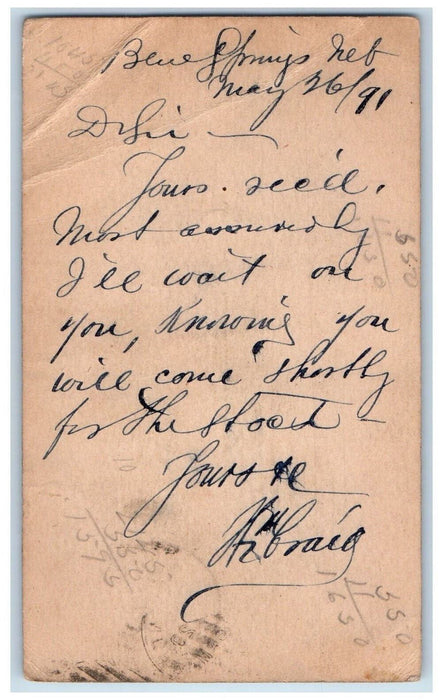 Blue Springs Neb
May 26/91
D Sir —
Yours. rec'd.
Most assuredly
I'll wait on
you, Knowing you
will come shortly
for the stock —
Yours &c
Wm Craig
550
1150
550
11
165
10